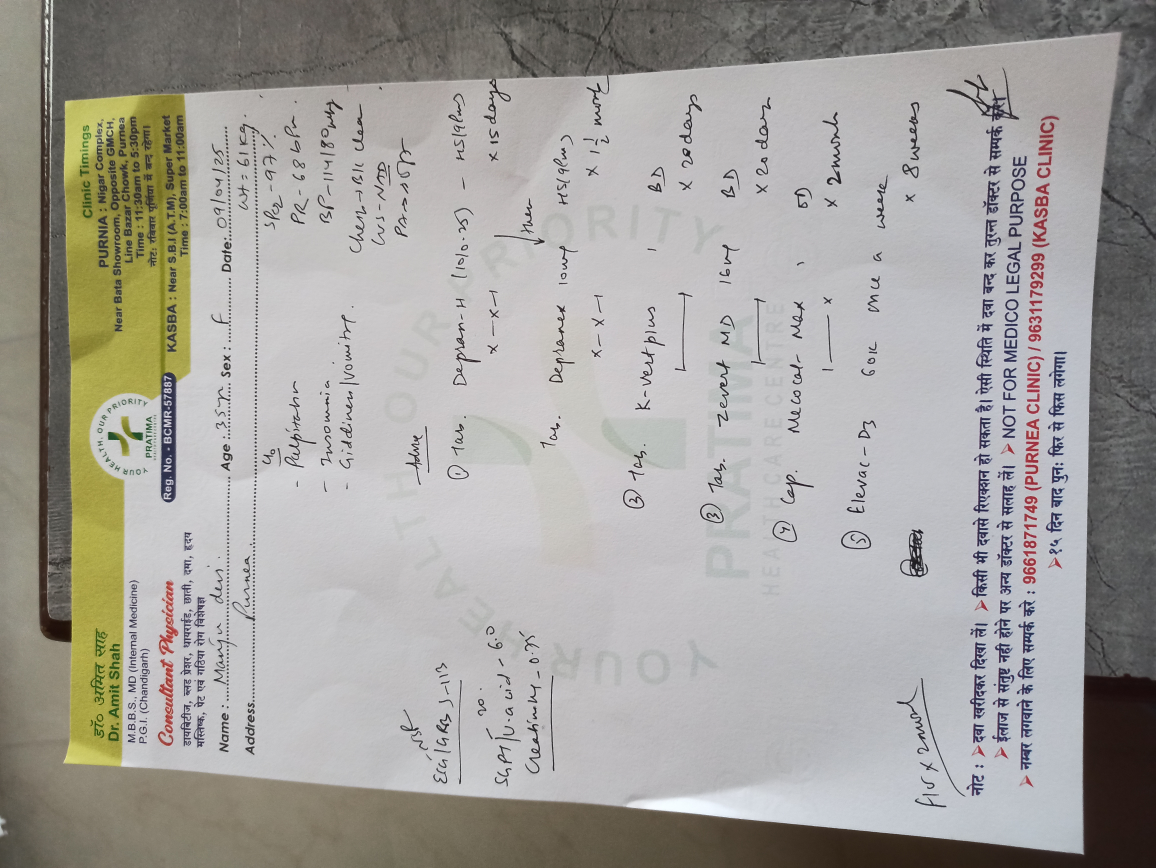 डॉ० अमित साह
Dr. Amit Shah
M.B.B.S., MD (Internal Medicine)
P.G.I. (Chandigarh)
Consultant Physician
डायबिटीज, ब्लड प्रेशर, थायराईड, छाती, दमा, हृदय
मस्तिष्क, पेट एवं गठिया रोग विशेषज्ञ
YOUR HEALTH, OUR PRIORITY
PRATIMA
Reg. No. - BCMR-57887
Clinic Timings
PURNIA : Nigar Complex,
Near Bata Showroom, Opposite GMCH,
Line Bazar Chowk, Purnea
Time : 11:30am to 5:30pm
नोट: रविवार पूर्णिया में बन्द रहेगा।
KASBA : Near S.B.I (A.T.M), Super Market
Time : 7:00am to 11:00am
Name : Manju devi Age : 35yr Sex : F Date: 09/04/25
Address Purnea
Wt = 61kg.
SPO2 - 97%
PR - 68 bPm
BP - 114/80
Chest - B/L clear
CVS - NAD
PA - soft
C/o
- Palpitation
- Insomnia
- Giddiness/vomiting.
Advice
ECG/GRBS - 113
SGPT/U.acid - 6.0
20
Creatinine - 0.75
① Tab. Depran-H (10/0.25) - HS/9pm
x-x-1 x 15 days
then
Tab. Depranex 10mg HS/9pm
x-x-1 x 1½ month
② Tab. K-vertplus 1 BD
x 20 days
③ Tab. Zevert MD 16mg BD
x 20 days
④ Cap. Necocal-Max 1 OD
x 2 month
⑤ Elevac-D3 60K once a week
x 8 weeks
F/U x 2 month
YOUR HEALTH OUR PRIORITY
PRATIMA
HEALTHCARE CENTRE
नोट : ➤ दवा खरीदकर दिखा लें। ➤ किसी भी दवासे रिएक्शन हो सकता है। ऐसी स्थिति में दवा बन्द कर तुरन्त डॉक्टर से सम्पर्क करें।
➤ ईलाज से संतुष्ट नही होने पर अन्य डॉक्टर से सलाह लें। ➤ NOT FOR MEDICO LEGAL PURPOSE
➤ नम्बर लगवाने के लिए सम्पर्क करे : 9661871749 (PURNEA CLINIC) / 9631179299 (KASBA CLINIC)
➤ १५ दिन बाद पुनः फिर से फिस लगेगा।